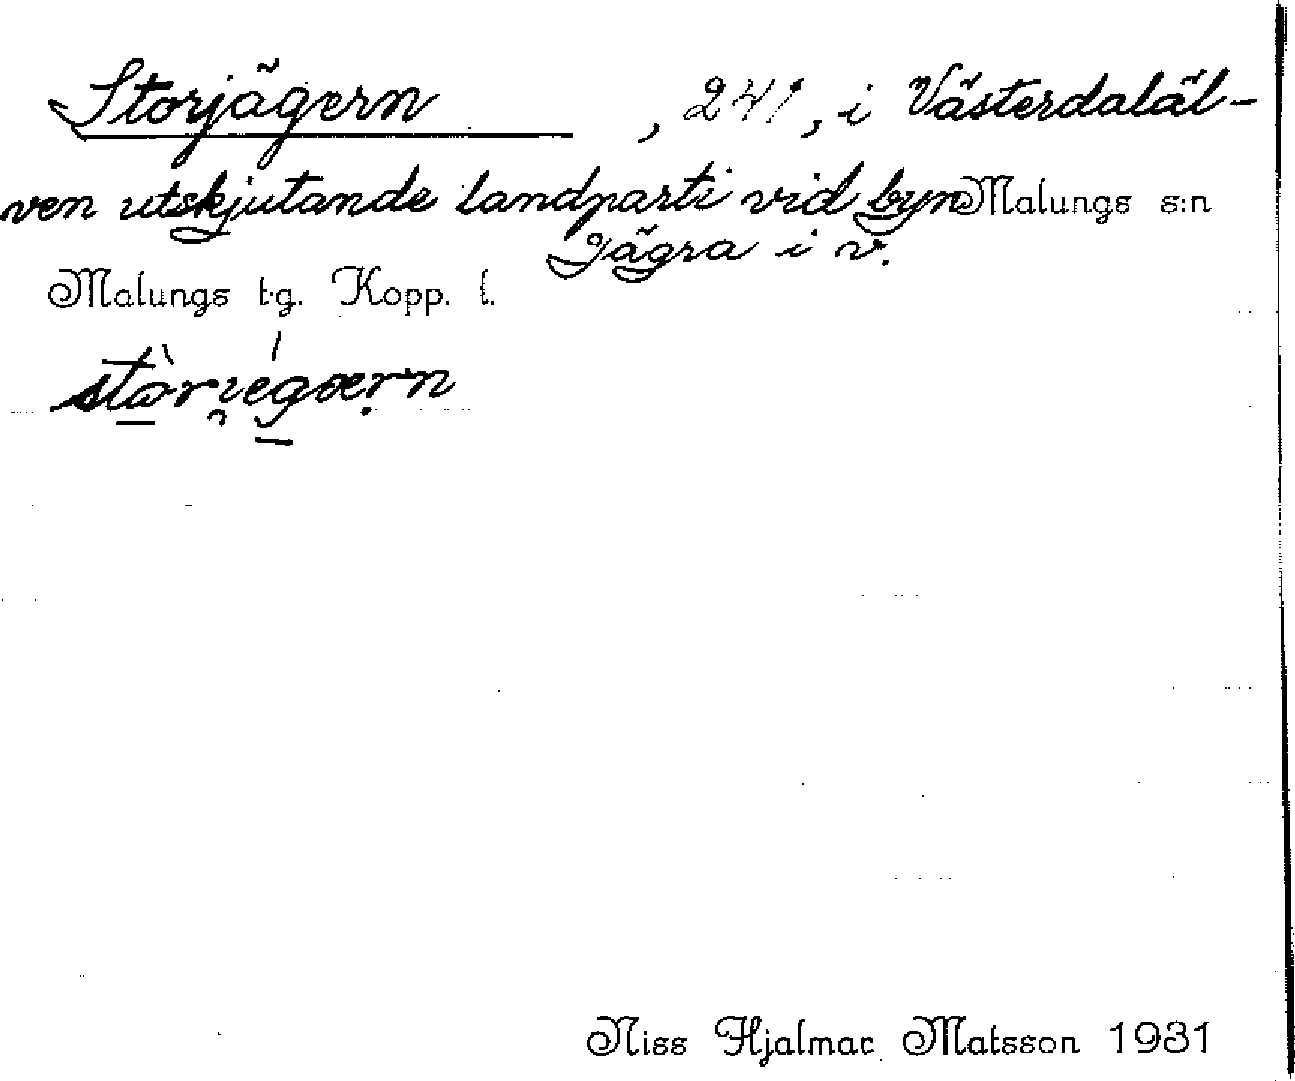 Storjägern, 241, i Västerdaläl-
ven utskjutande landparti vid byn Malungs s:n
Jägra i v.
Malungs t.g. Kopp. l.
Niss Hjalmar Matsson 1931